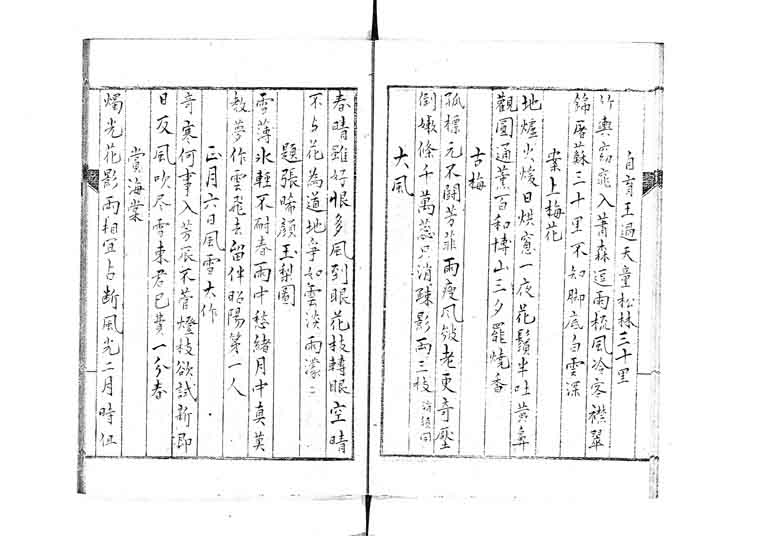 自育王過天童松林三十里
竹輿窈窕入蕭森逗雨梳風冷客襟翠
錦屠蘇三十里不知脚底白雲深
案上梅花
地爐火煖日烘窓一夜花鬚半吐黄鼻
觀圓通薰百和博山三夕罷燒香
古梅
孤標元不鬪芳菲雨瘦風皴老更奇壓
倒嫩條千萬蕊只消疎影兩三枝
大風
春晴雖好恨多風到眼花枝轉眼空晴
不与花為道地爭如雲淡雨濛〻
題張晞顔玉梨圖
雪薄冰輕不耐春雨中愁緒月中真莫
教夢作雲飛去留伴昭陽第一人
正月六日風雪大作
奇寒何事入芳辰不管燈枝欲試新即
日反風吹尽雪東君已費一分春
賞海棠
燭光花影兩相宜占斷風光二月時但